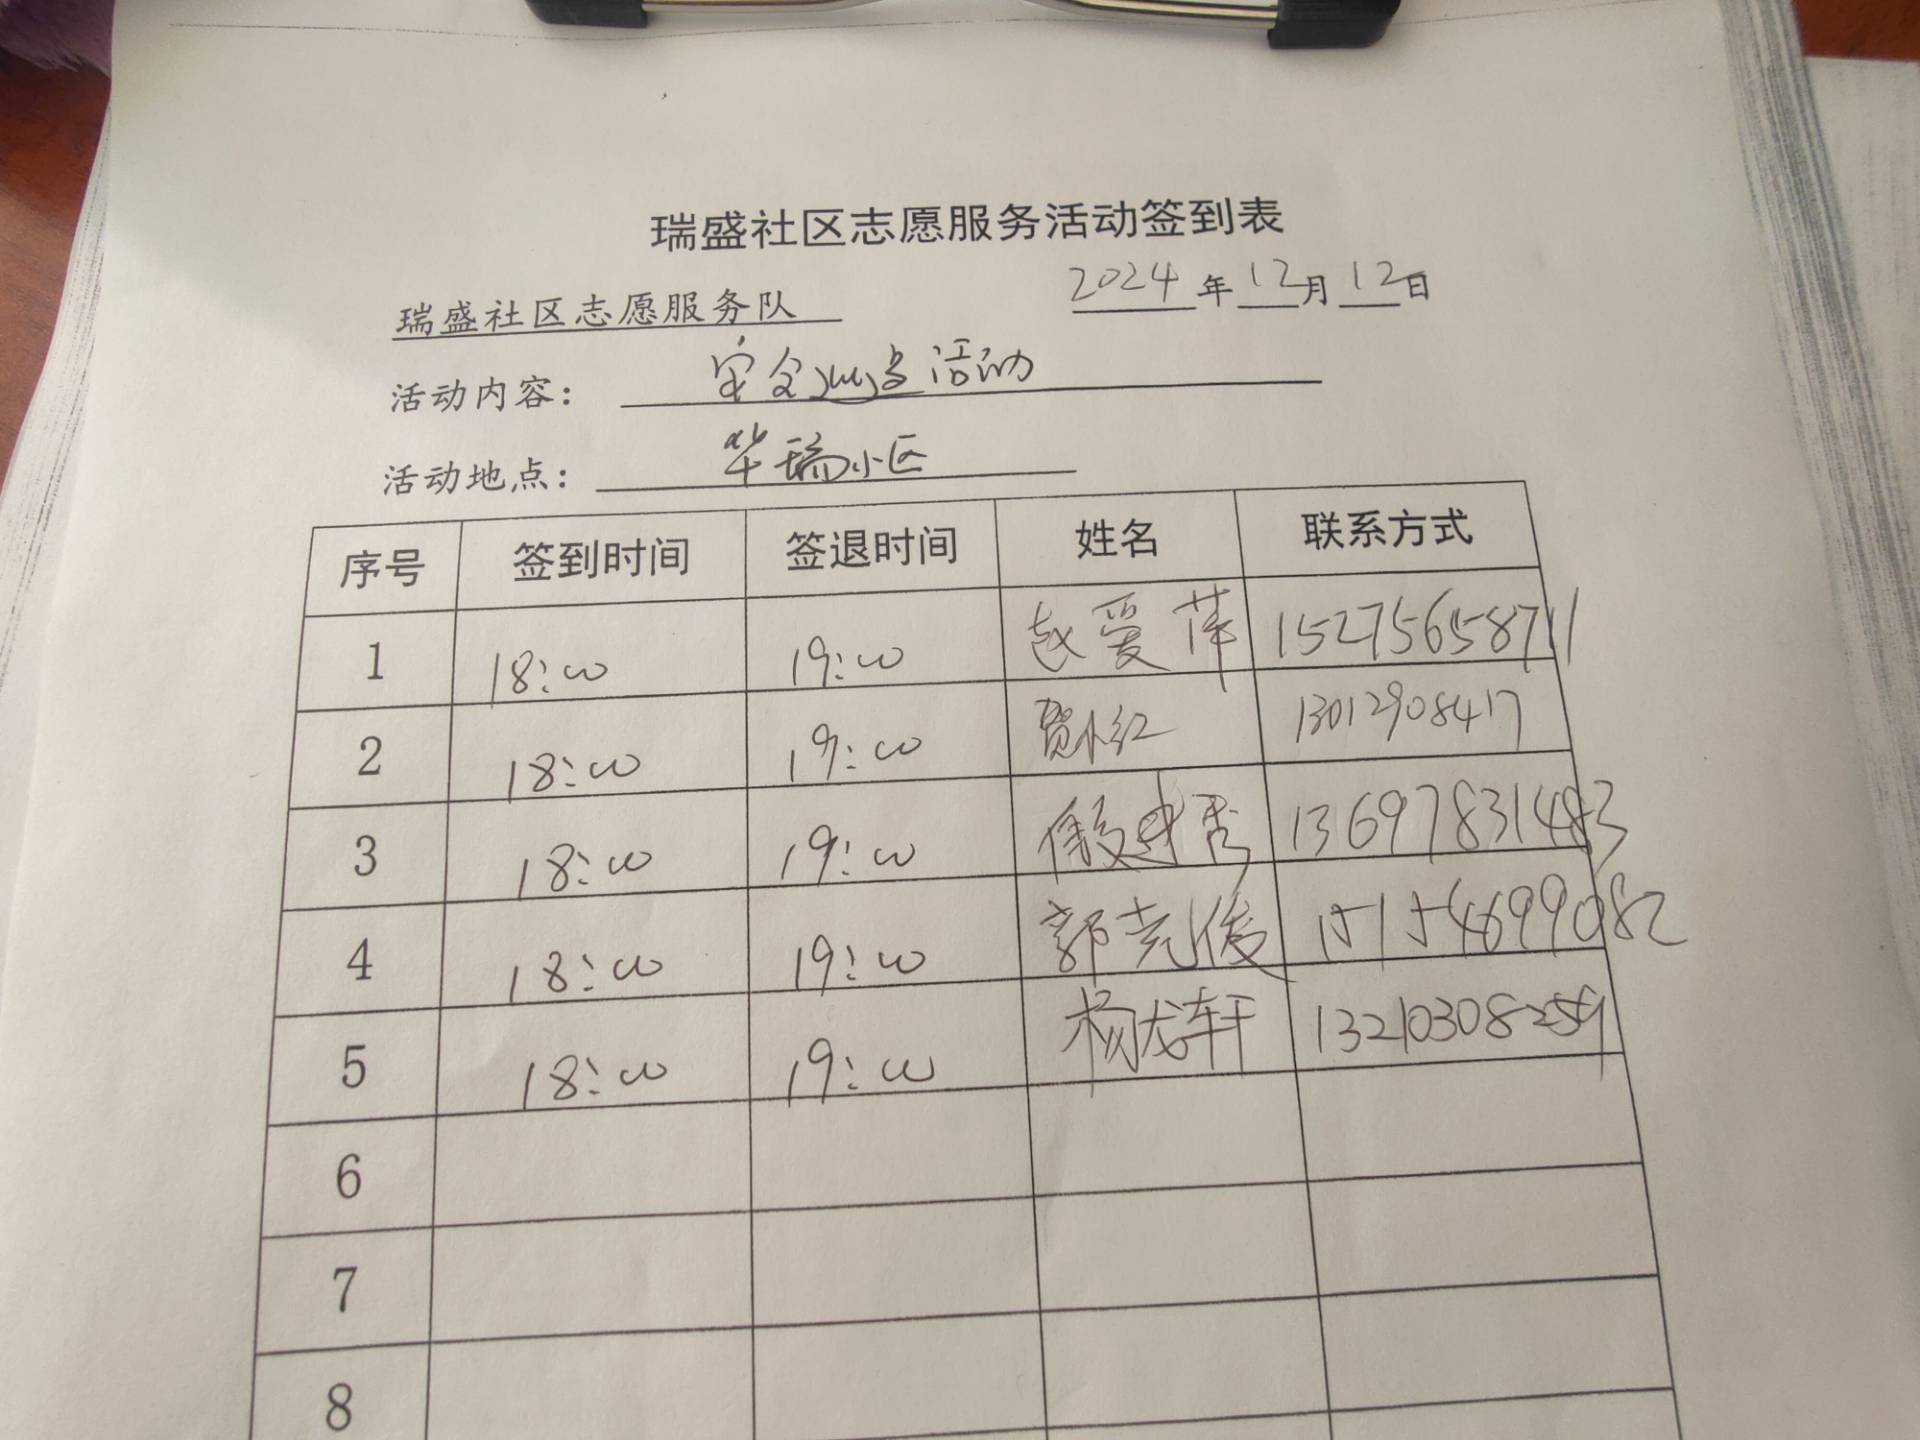 瑞盛社区志愿服务活动签到表
瑞盛社区志愿服务队 2024年12月12日
活动内容： 安全 活动
活动地点： 华瑞小区
序号 签到时间 签退时间 姓名 联系方式
1 18:00 19:00 赵爱萍 15275658711
2 18:00 19:00 贾小红 13012908417
3 18:00 19:00 秀 13697831483
4 18:00 19:00 郭光俊 15154699082
5 18:00 19:00 杨龙轩 13210308259
6
7
8